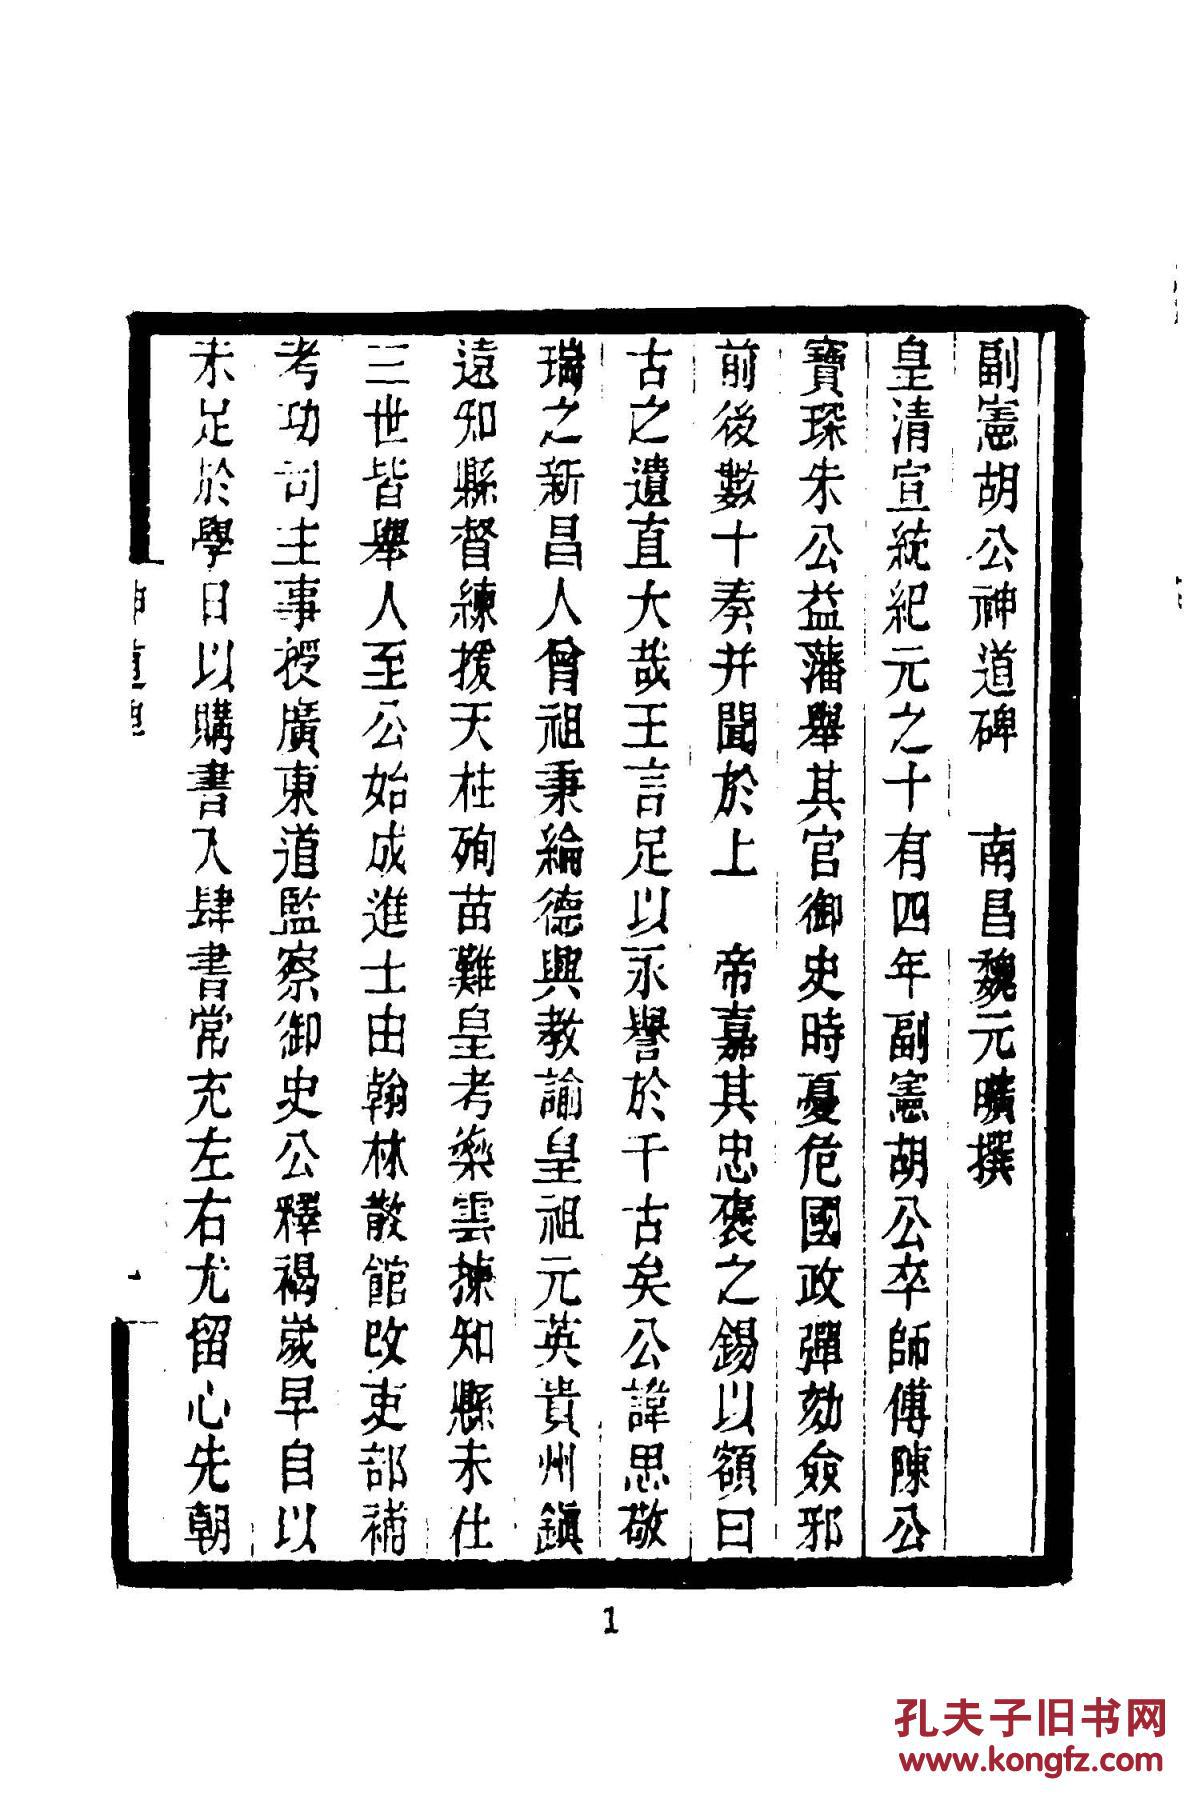 副憲胡公神道碑　南昌魏元曠撰
皇清宣統紀元之十有四年副憲胡公卒師傅陳公
寶琛朱公益藩舉其官御史時憂危國政彈劾僉邪
前後數十奏并聞於上　帝嘉其忠褒之錫以額曰
古之遺直大哉王言足以永譽於千古矣公諱思敬
瑞之新昌人曾祖秉綸德興教諭皇祖元英貴州鎭
遠知縣督練援天柱殉苗難皇考藥雲揀知縣未仕
三世皆舉人至公始成進士由翰林散館改吏部補
考功司主事授廣東道監察御史公釋褐嵗早自以
未足於學日以購書入肆書常充左右尤留心先朝
神道碑
一
1
孔夫子旧书网
www.kongfz.com